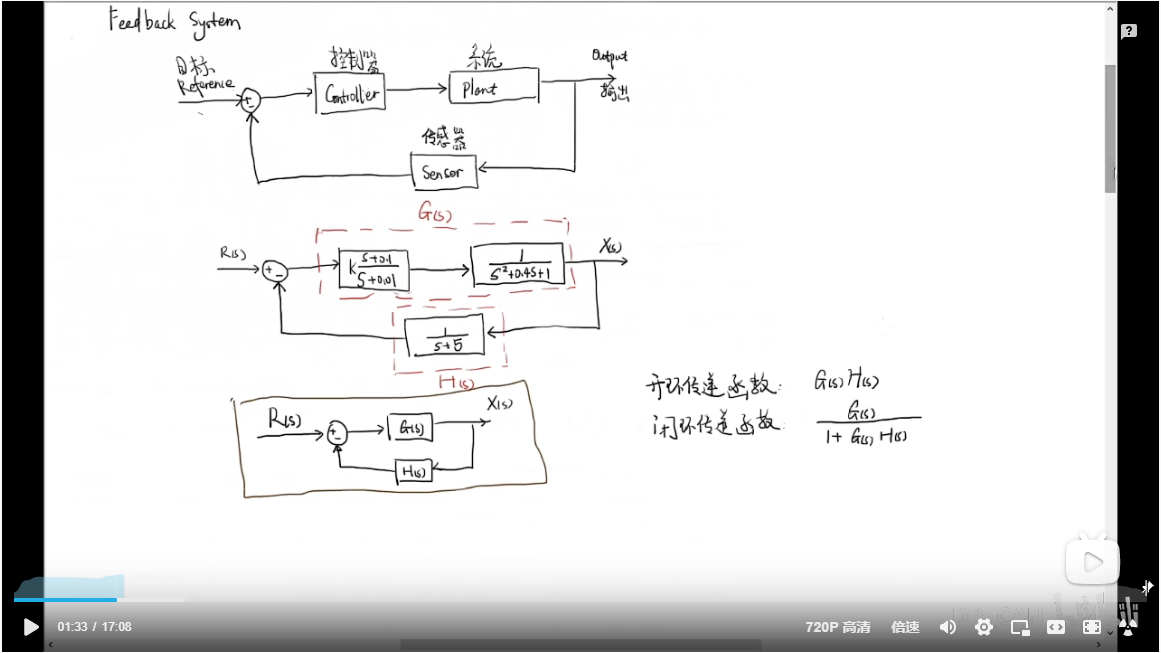 Feedback System
目标
Reference
控制器
Controller
系统
Plant
Output
输出
+
-
传感器
Sensor
G(s)
R(s)
+
-
K (s+0.1)/(s+0.01)
1/(s²+0.4s+1)
X(s)
1/(s+5)
H(s)
R(s)
+
-
G(s)
X(s)
H(s)
开环传递函数: G(s)H(s)
闭环传递函数: G(s)/(1+G(s)H(s))
01:33 / 17:08
720P 高清
倍速